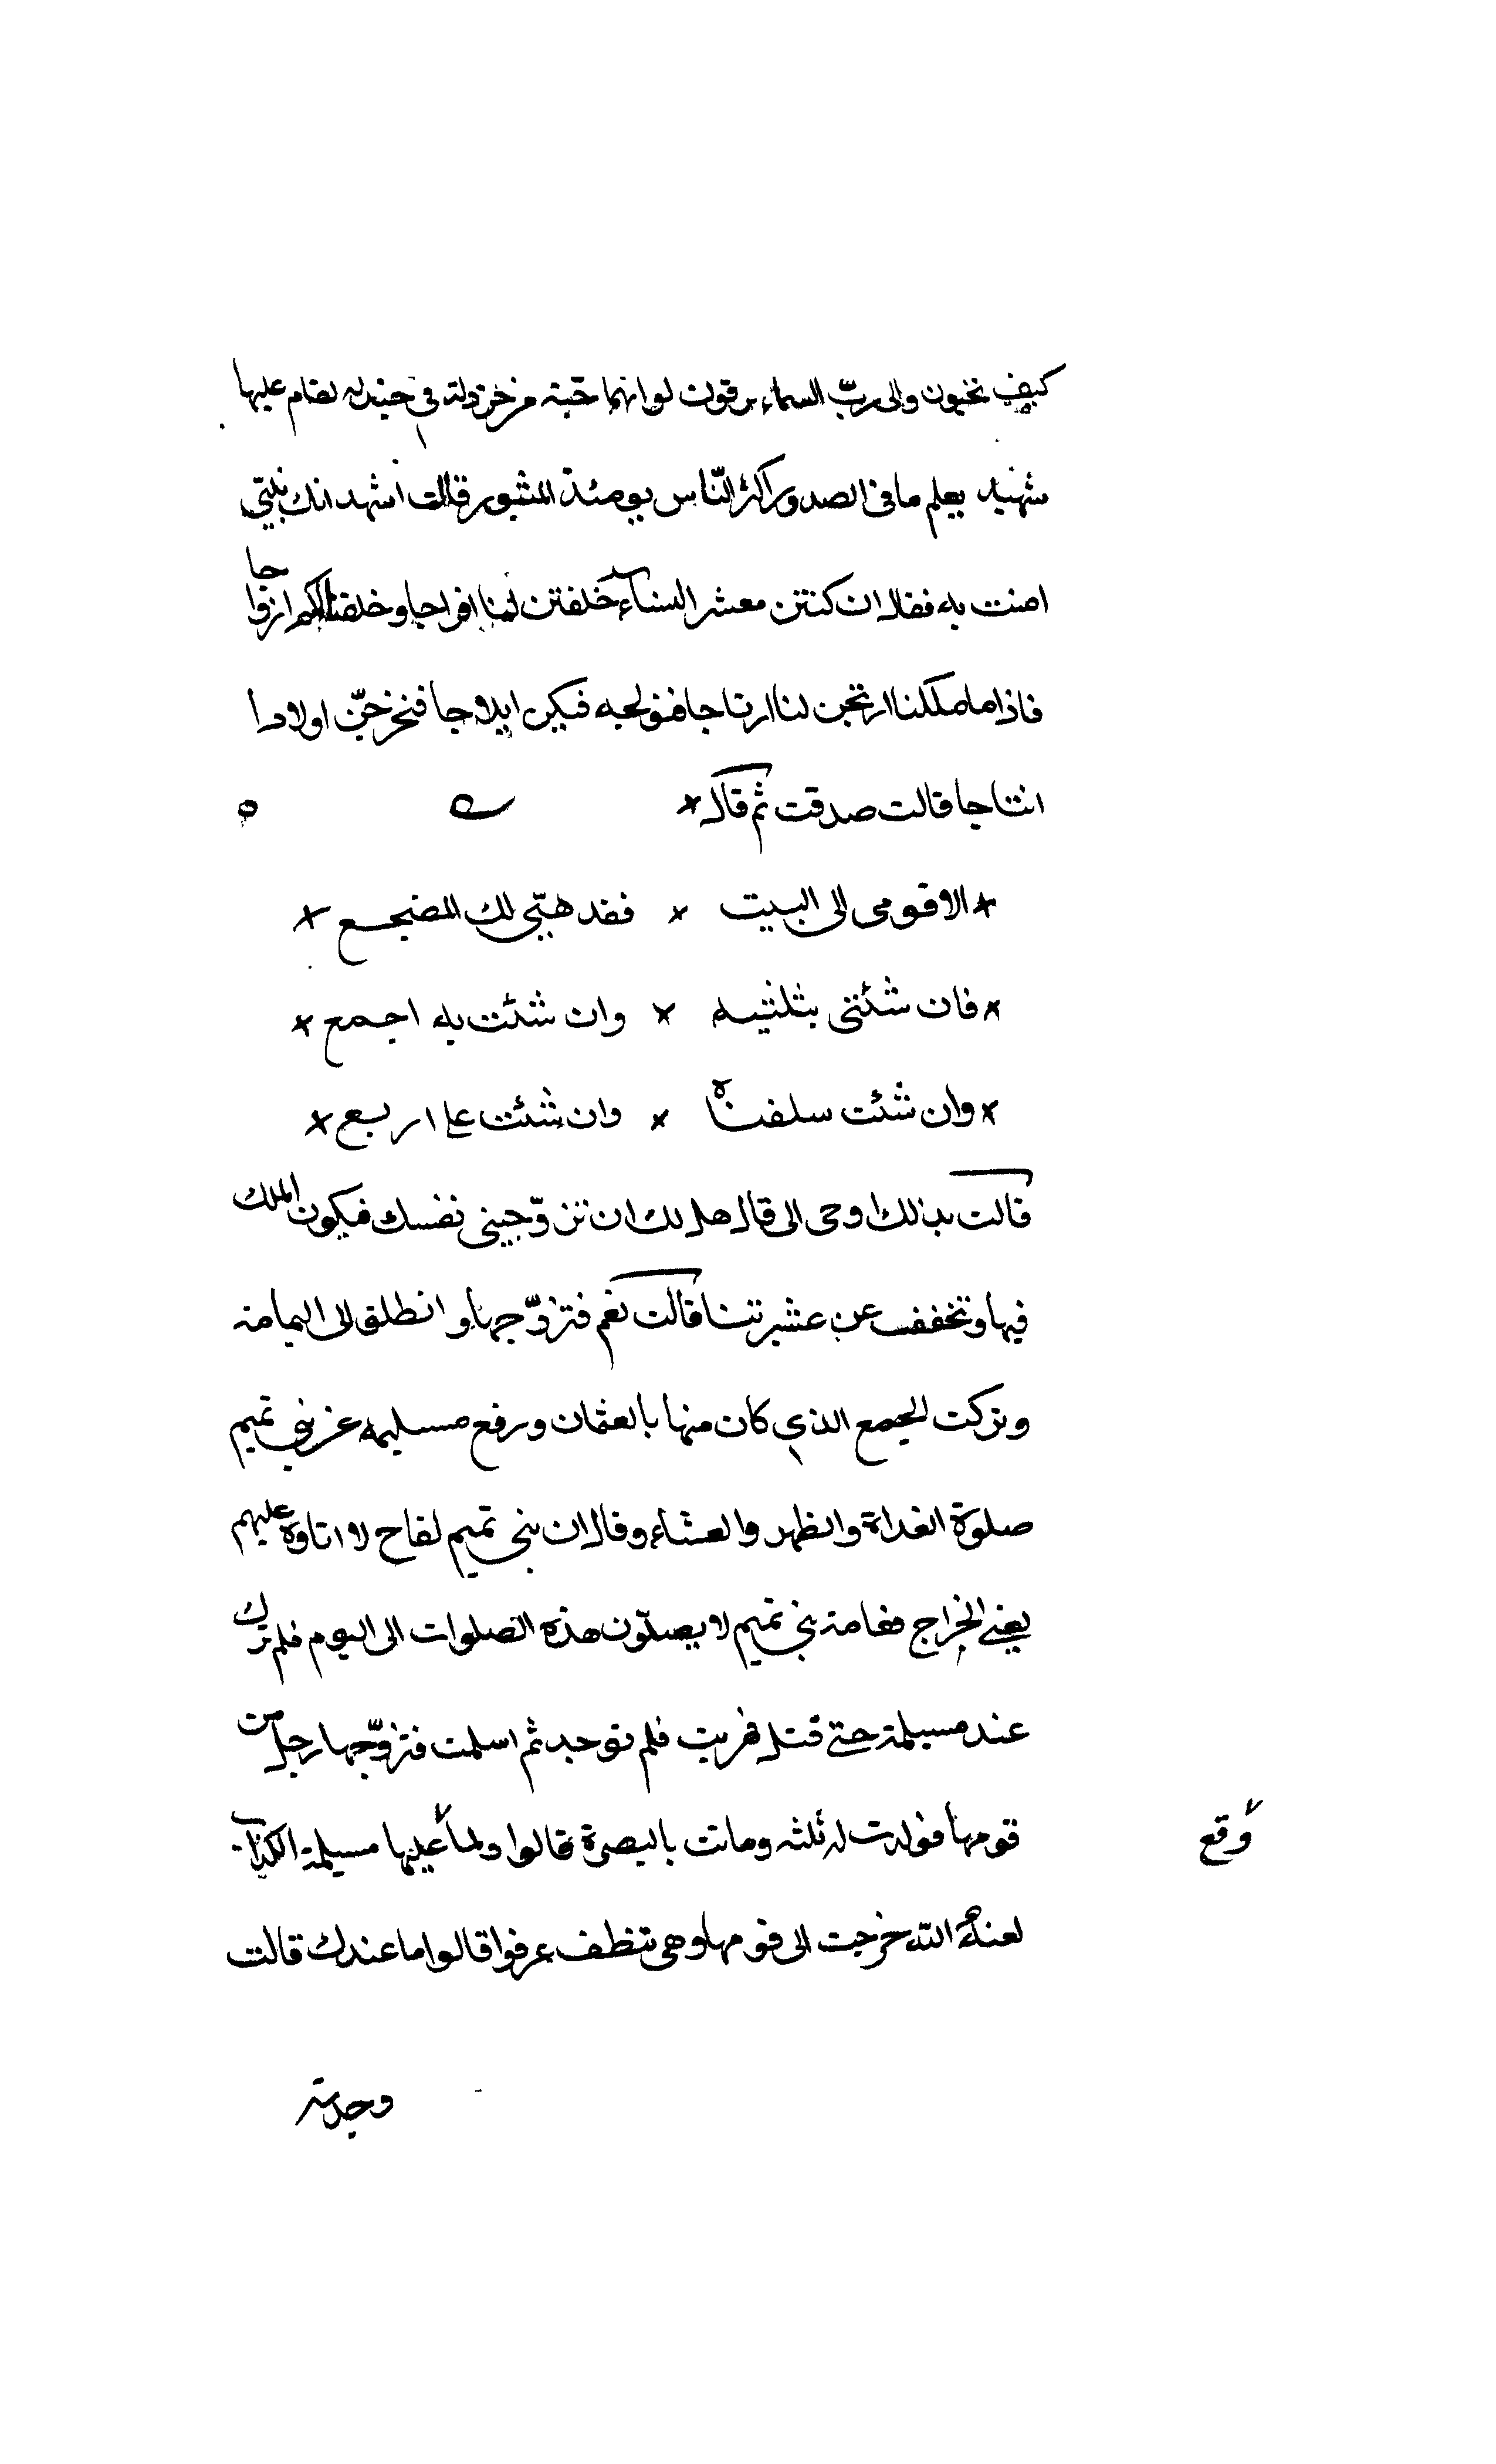 كيف تحيون والى ربّ السماء ترقون لو انهما حبّة من خردلة فى جندله لقام عليها
شهيد يعلم ما فى الصدور اكثر النّاس يومئذ المثبور قالت اشهد انك نبيّى
امنت به فقال ان كنتن معشر النساء خلقتن لنا افواجا وخلقنا لكم ازواجا
فاذا ما ملكنا ارتجن لنا ارتاجا فنولجه فيكن ايلاجا فنخرجنّ اولادا
انتاجا قالت صدقت ثم قال ×
× الا قومى الى البيت × فقد هيّى لك المضجع ×
× فان شئتى بثلثيه × وان شئت به اجمع ×
× وان شئت سلقناه × وان شئت على اربع ×
قالت بذالك اوحى الى قال هل لك ان تزوّجينى نفسك فيكون الملك
فيها وتخفف عن عشيرتنا قالت نعم فتزوّجها وانطلق الى اليمامة
وتركت الجمع الذي كان منها بالعثمان ورفع مسليمه عن بنى تميم
صلوة الغداة والظهر والعشاء وقال ان بنى تميم لقاح لا اتاوة عليهم
يعنى الخراج فعامة بنى تميم لا يصلّون هذه الصلوات الى اليوم فلم تزل
عند مسيلمة حتى قتل فهربت فلم توجد ثم اسلمت فتزوّجها رجل من
قومها فولدت له ثلثه وماتت بالبصرة قالوا ولما عليها مسيلمة الكذاب
وقع
لعنة الله خرجت الى قومها وهى تنظف عرفوا قالوا ما عندك قالت
وجدته